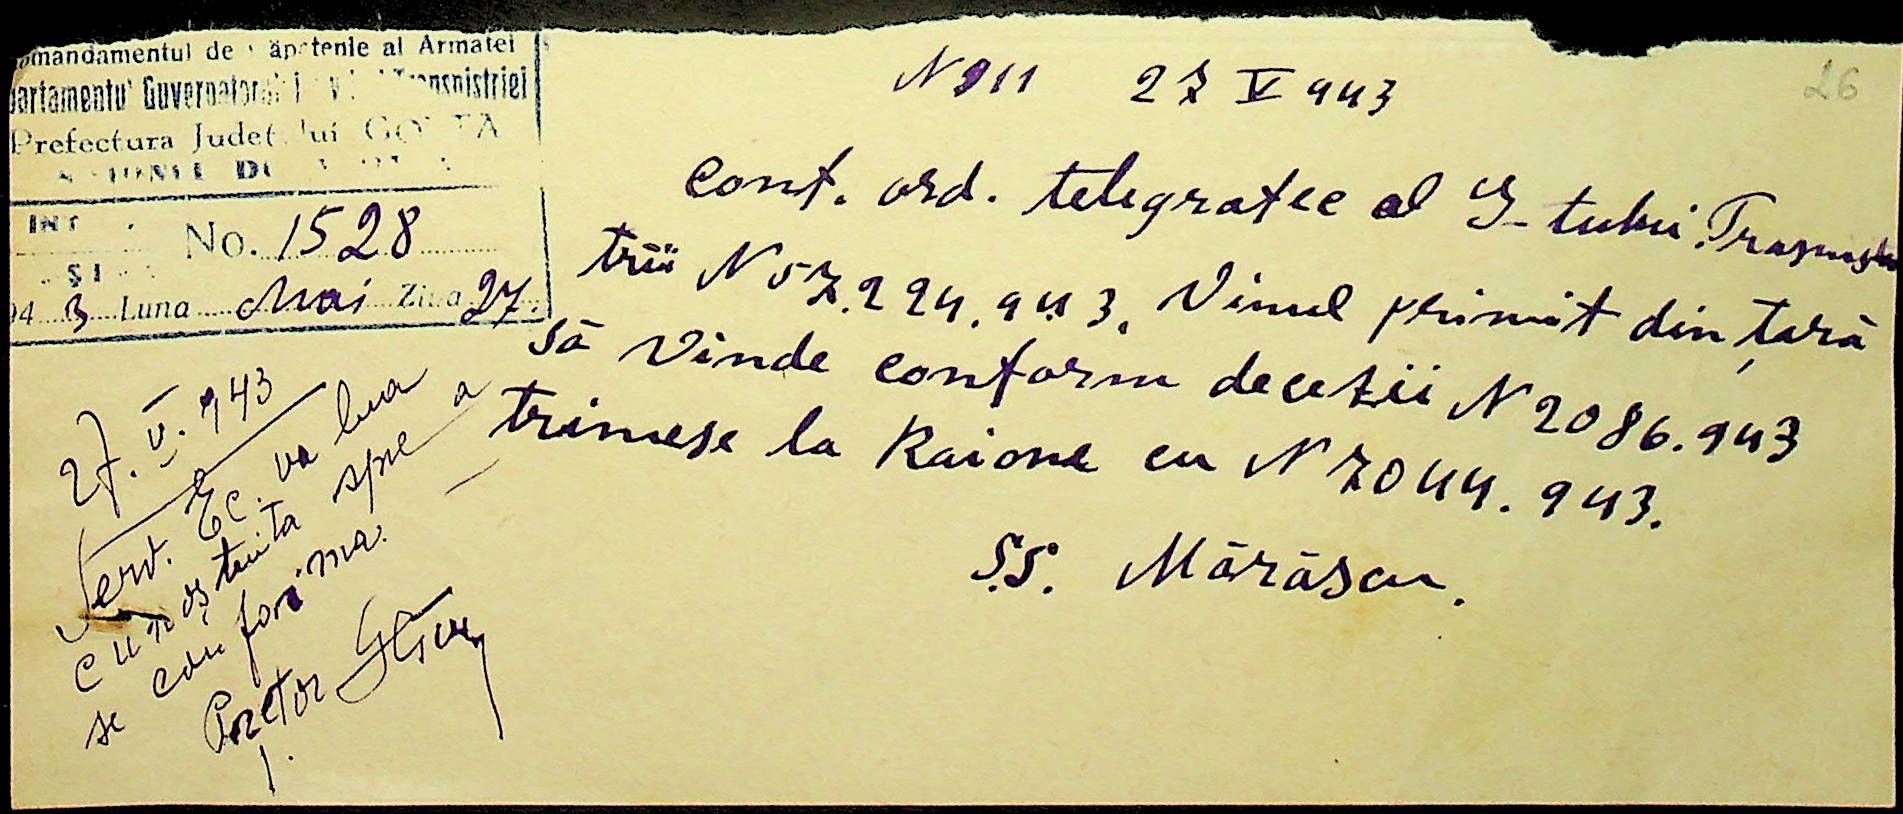 omandamentul de Căpetenie al Armatei
partamentul Guvernatorial Transnistriei
Prefectura Județului GOLTA
No. 1528
ȘI
94 3 Luna Mai Ziua 27.
26
N 911 27 V 943
Conf. ord. telegrafec al G-tului Trasnis
trii N 57.224.943. Vinul primit din țară
să vinde conform decezii N 2086.943
trimese la Raione cu N 7044.943.
S.S. Mărăscu.
27.V.943
Serv. Ec. va lua
cunoștuita spre a
se conforma.
Pretor